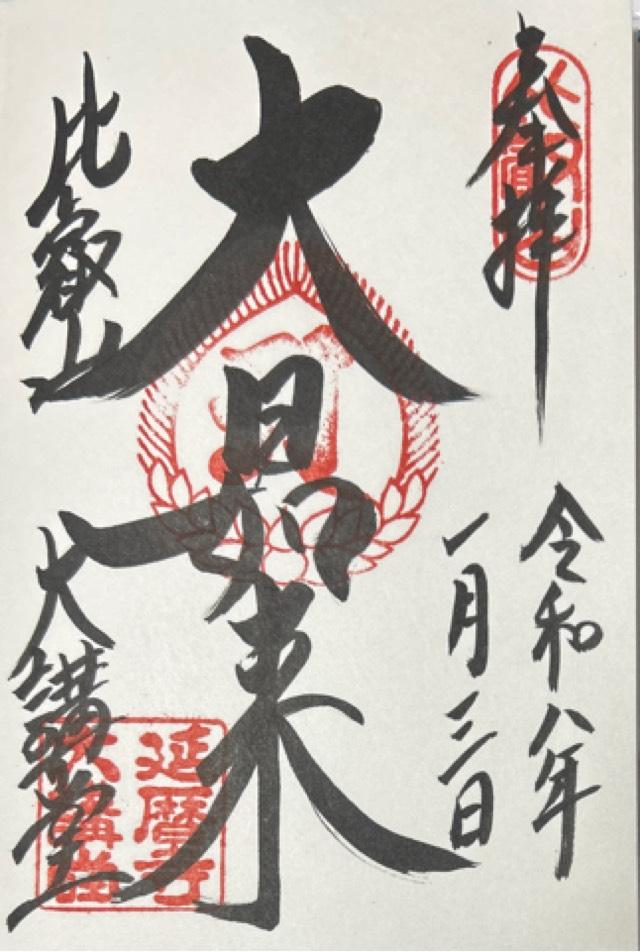 奉拝
比叡山
令和八年
一月三日
大日如来
比叡山
大講堂
延暦寺
大講堂